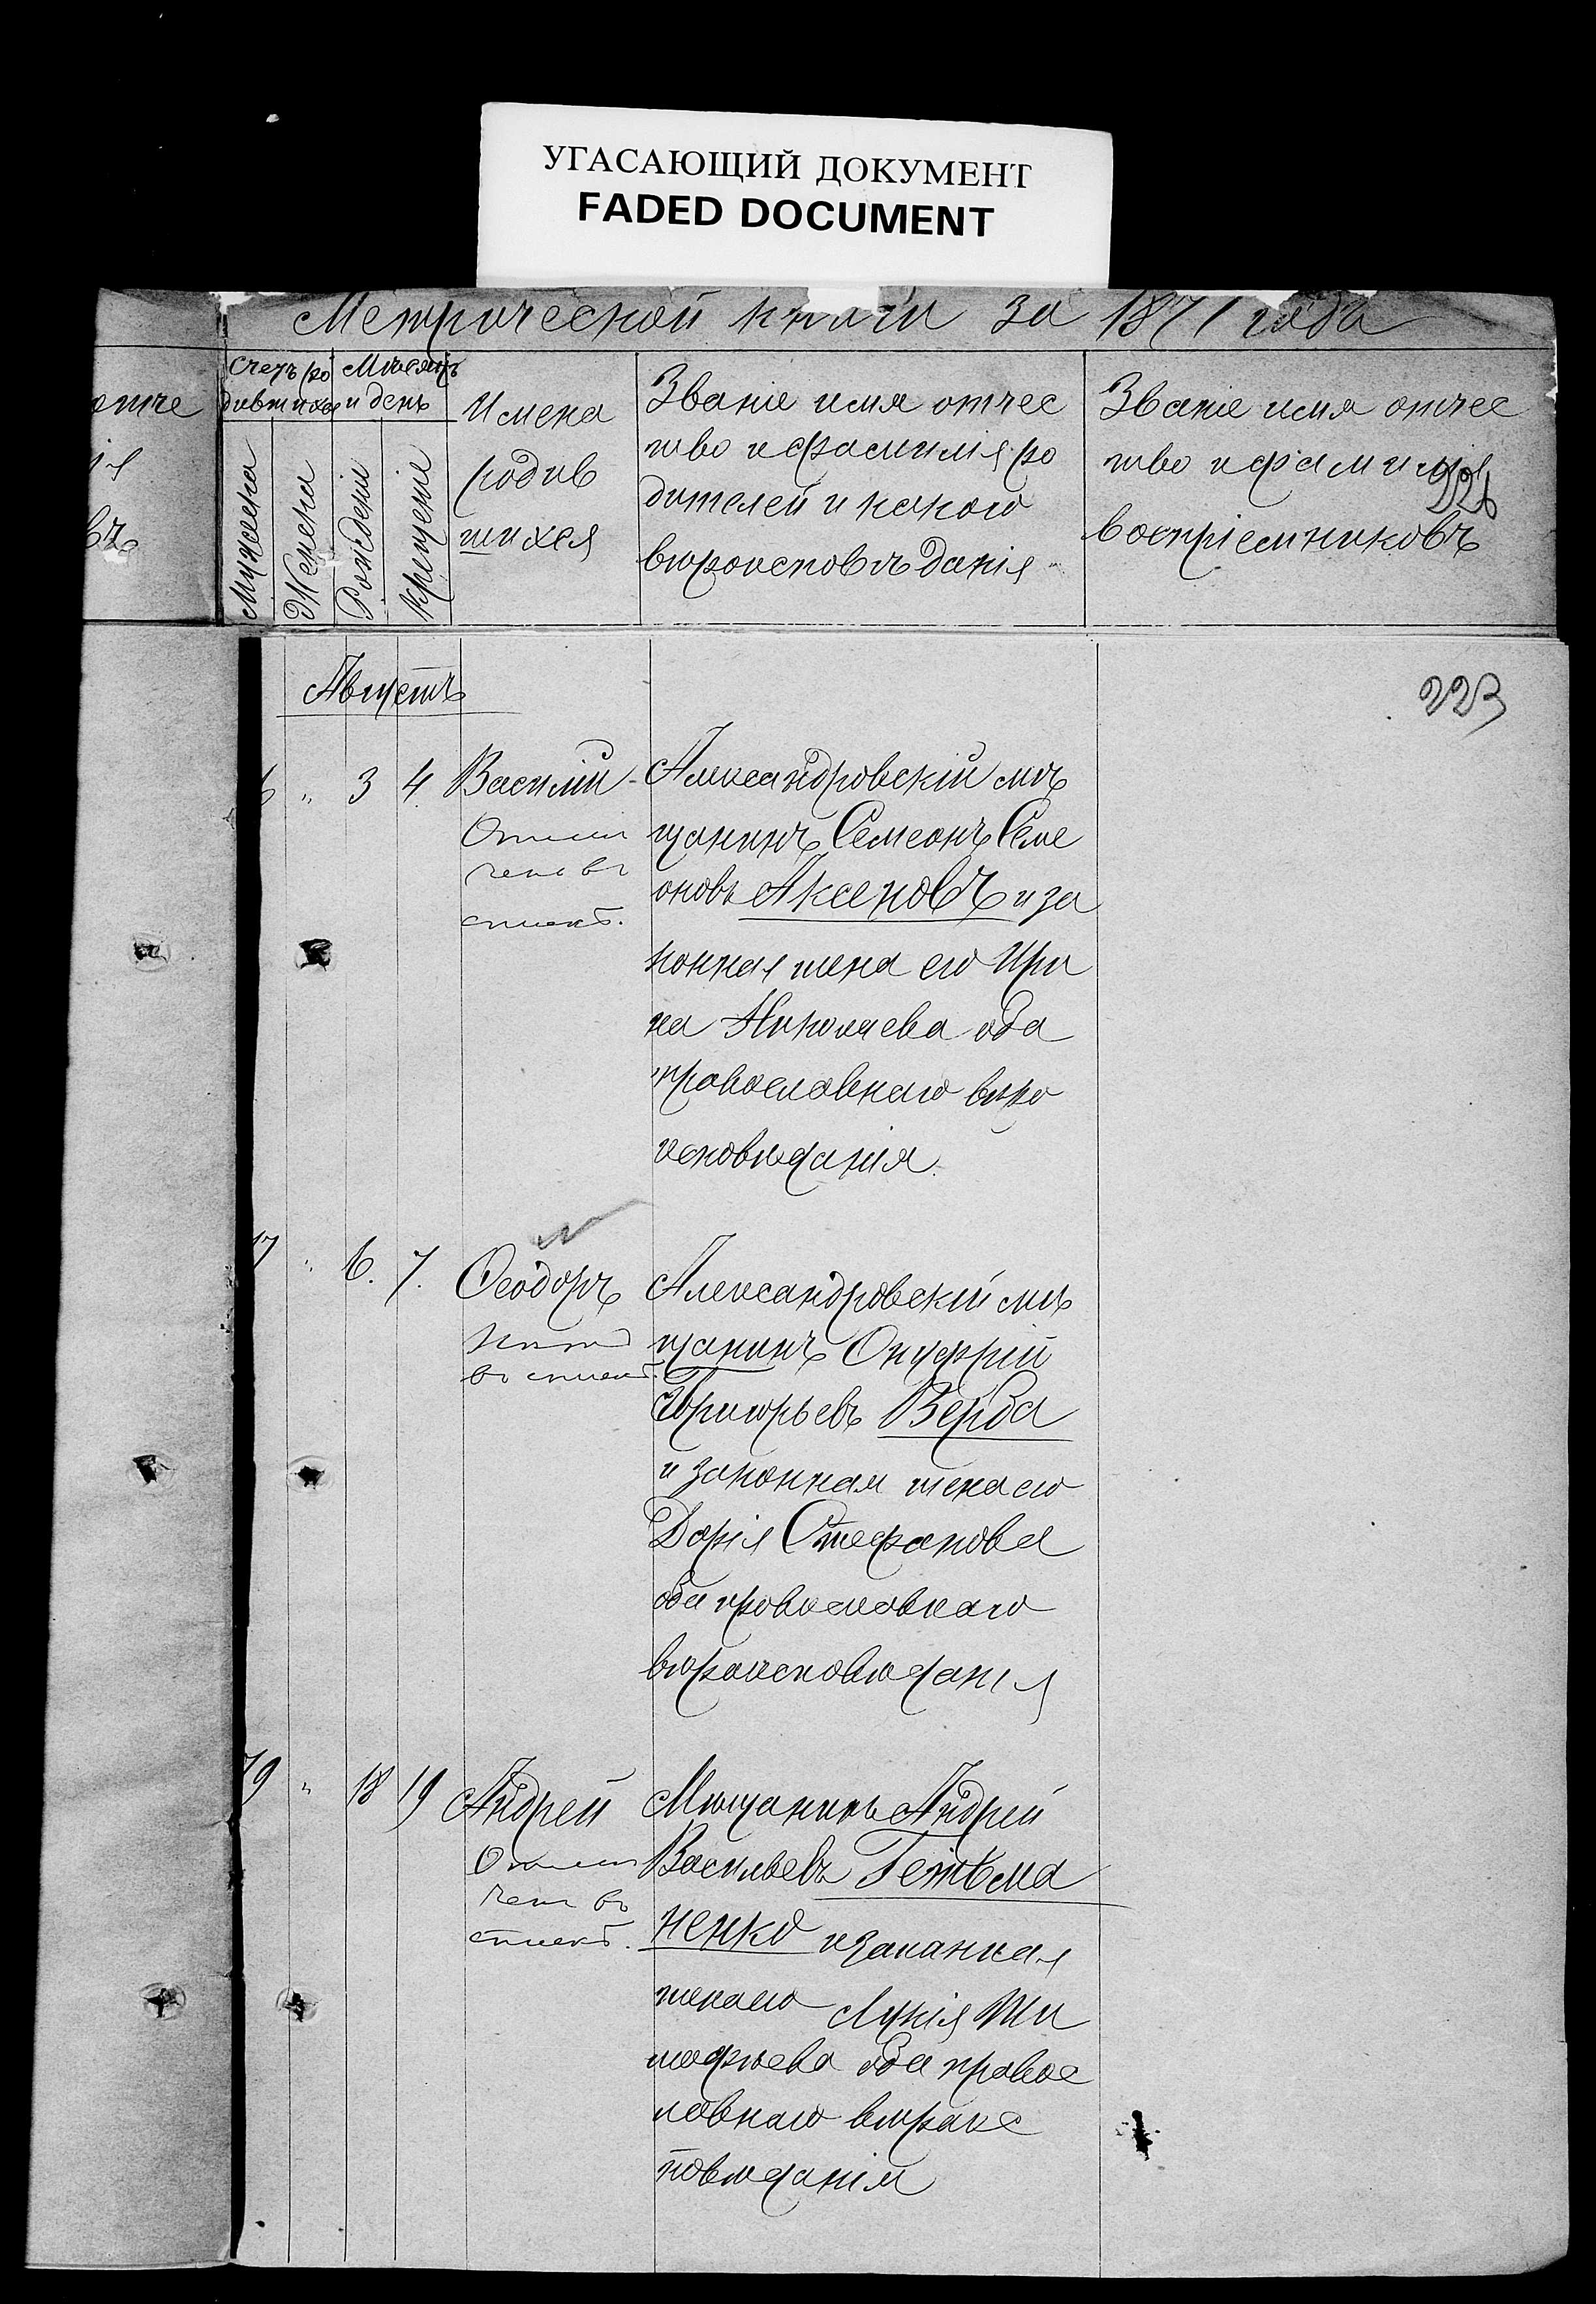 УГАСАЮЩИЙ ДОКУМЕНТ
FADED DOCUMENT
Метрической книги за 1871 года
отче
Счетъ ро
дившихся
Мѣсяцъ
и день
Мужеска
Женска
Рожденіе
Крещеніе
Имена
родив
шихся
Званіе имя отчес
тво и фамилія ро
дителей и какого
вѣроисповѣданія
Званіе имя отчес
тво и фамилія
воспріемниковъ
226
Августъ
223
6 " 3 4. Василій
Отмѣ
ченъ въ
списк.
Александровскій мѣ
щанинъ Семеонъ Семе
оновъ Аксеновъ и за
конная жена его Ири
на Николаева оба
православнаго вѣро
исповѣданія.
17 " 6. 7. Ѳеодоръ
въ списк.
Александровскій мѣ
щанинъ Онуфрій
Григорьевъ Верба
и законная жена его
Дарія Стефанова
оба православнаго
вѣроисповѣданія
79 " 18 19 Андрей
Отмѣ
ченъ въ
списк.
Мѣщанинъ Андрей
Васильевъ Гетьма
ненко и законная
жена его Лукія Ти
мофѣева оба правос
лавнаго вѣроис
повѣданія